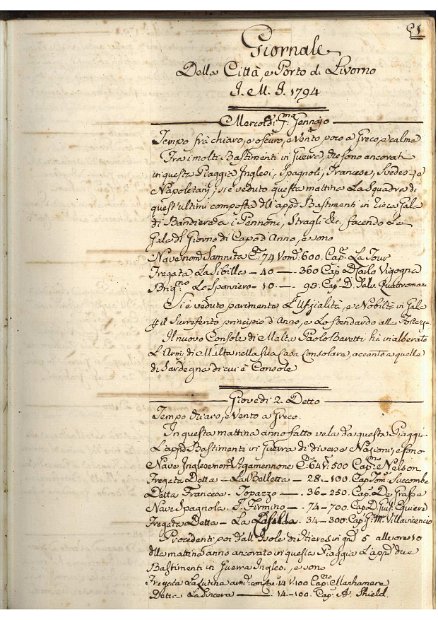 51
Giornale
Della Città e Porto di Livorno
J. M. J. 1794
Mercoledi P.mo Gennajo
Tempo frà chiaro, e oscuro, e Vento poco a Greco, e calma
Fra i molti Bastimenti in Guerra, che sono ancorati
in queste Piagge Inglesi, Spagnoli, Francese, Svedese, e
Napoletani, si è veduto questa mattina La Squadra di
quest'ultimi composta dell'app.i Bastimenti in
di Bandiere da i Pennoni, Stragli &c. facendo le
Gale di Giorno di Capo d'Anno, e sono
Nave nom. Sannita C. 74 Vom. 600. Cap. La Tour
Fregata La Sibille — 40 — 360 Cap. D. Paolo Vigogna
Brig.no Lo Sparviero — 10 — 98 Cap. D.
Si è veduto parimente L'Uffizialità, e Nobiltà in Gala
p. il Surriferito principio d'Anno, e Lo Stendardo alla Fortezza
Il nuovo Console di Malta Paolo Baretti hà inalberato
L'Armi di Malta nella Sua Casa Consolare accanto a quella
di Sardegna di cui è Console
Giovedi 2. Detto
Tempo chiaro, e Vento a Greco
In questa mattina anno fatto vela da questa Piaggia
L'app.i Bastimenti in Guerra di diverse Nazioni, e sono
Nave Inglese nom. Agamennone C. 64 V. 500 Cap. Nelson
Fregata Detta — La Bolletta — 28 — 100. Cap. Tom.
Detta Francese. Topazzo — 36 — 250. Cap. De Grasse
Nave Spagnola S. Firmino — 74 — 700. Cap. D.
Fregata Detta — La — 34 — 300. Cap. D. M. Villavicencio
Procedenti poi dall'Isole di Hieres in g. 5 alle ore 10
della mattina anno ancorato in questa Piaggia L'app. due
Bastimenti in Guerra Inglesi, e sono
Fregata Lutina arm. con C. 14 V. 100 Cap.
Detta — 14 — 100. Cap. A. Shield.